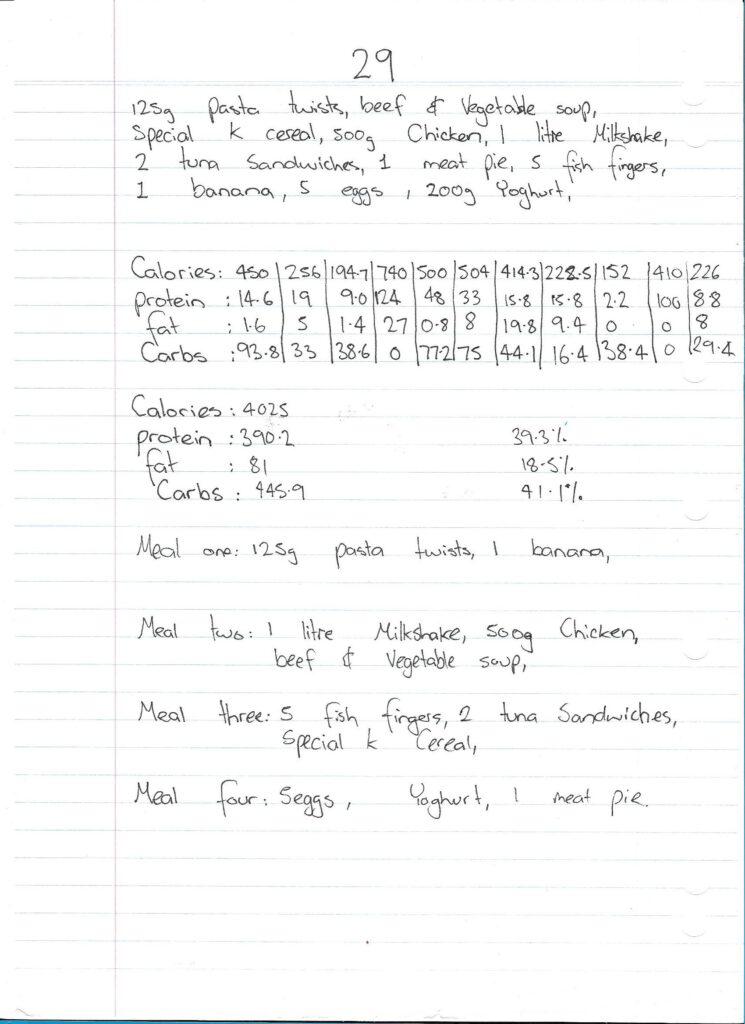 29
125g pasta twists, beef & Vegetable soup,
Special k cereal, 500g Chicken, 1 litre Milkshake,
2 tuna Sandwiches, 1 meat pie, 5 fish fingers,
1 banana, 5 eggs, 200g Yoghurt,
Calories: 450 | 256 | 194.7 | 740 | 500 | 504 | 414.3 | 228.5 | 152 | 410 | 226
protein : 14.6 | 19 | 9.0 | 124 | 48 | 33 | 15.8 | 15.8 | 2.2 | 100 | 8.8
fat : 1.6 | 5 | 1.4 | 27 | 0.8 | 8 | 19.8 | 9.4 | 0 | 0 | 8
Carbs : 93.8 | 33 | 38.6 | 0 | 77.2 | 75 | 44.1 | 16.4 | 38.4 | 0 | 29.4
Calories : 4025
protein : 390.2 39.3%
fat : 81 18.5%
Carbs : 445.9 41.1%
Meal one: 125g pasta twists, 1 banana,
Meal two: 1 litre Milkshake, 500g Chicken,
beef & Vegetable soup,
Meal three: 5 fish fingers, 2 tuna Sandwiches,
Special k Cereal,
Meal four: 5eggs, Yoghurt, 1 meat pie.